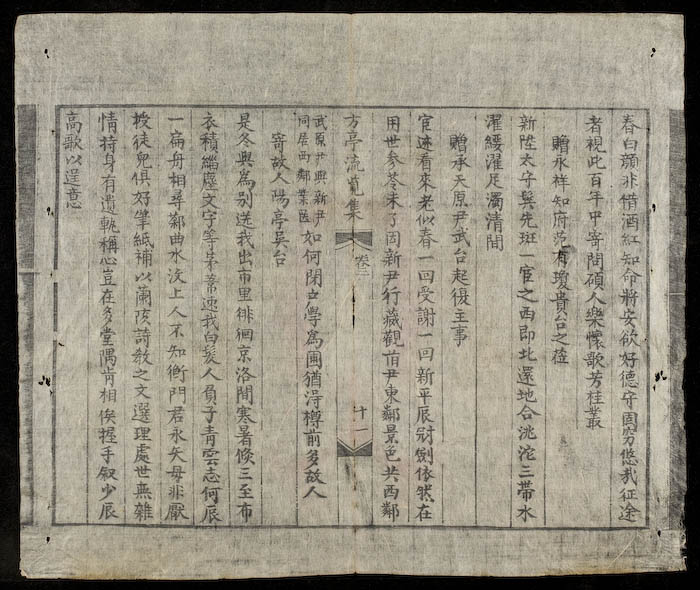 春白頭非借酒紅知命將安欲好德守固窮悠哉征途
者視此百年中寄問碩人樂懷歌芳桂叢
贈永祥知府范有瓊貴台之蒞
新陞太守與先斑一官之西即北還地合洮沱三帶水
濯纓濯足濁清間
贈承天原尹武台起復主事
官迹看來老似春一回受謝一回新平辰財劍依然在
用世參苓未了因新尹行藏觀舊尹東鄰景色共西鄰
武原尹興新尹
同居西鄰業醫
如何閉立學為圃猶淂樽前多故人
方亭流覽集
卷二
十一
寄故人陽亭吳台
是冬與為別送我出市里徘徊京洛間寒暑倏三至布
衣積緇塵文字等呆常速我白髮人負子青雲志何辰
一扁舟相尋鄰曲水汶上人不知衡門君永矢毋非厭
授徒兒俱好筆紙補以蘭陔詩教之文選理處世無雜
情持身有遺軌稱心豈在多堂隅肯相俟握手叙少辰
高歌以逞意